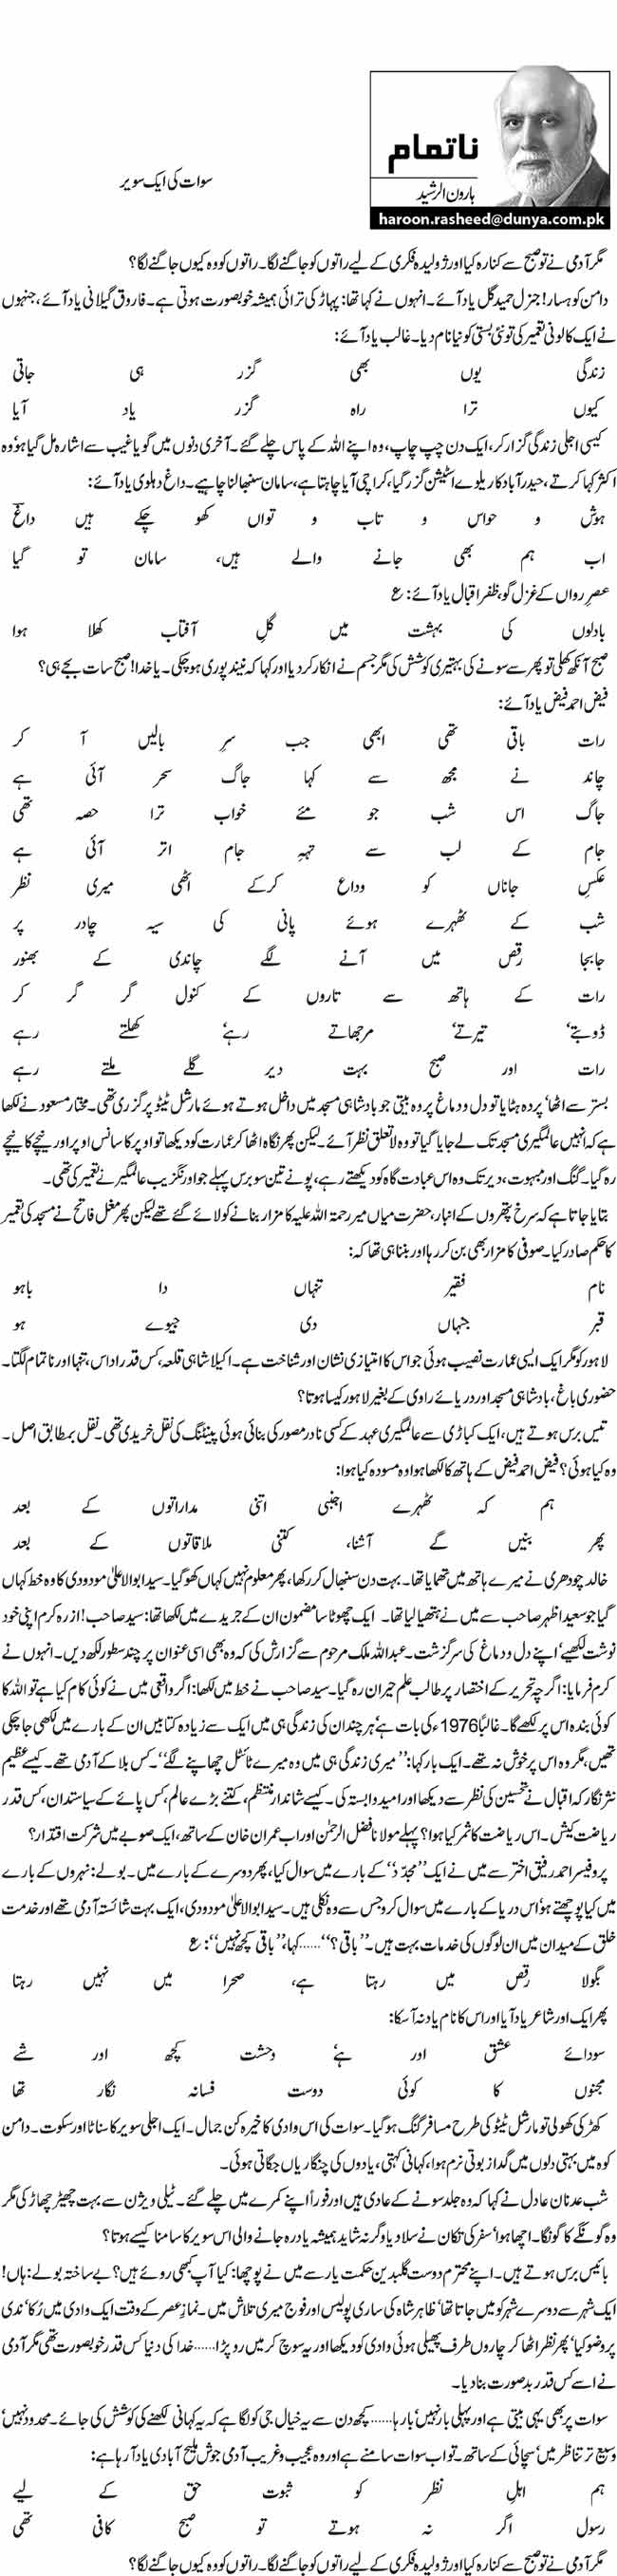 ناتمام
ہارون الرشید
haroon.rasheed@dunya.com.pk
سوات کی ایک سویر
مگر آدمی نے تو صبح سے کنارہ کیا اور ژولیدہ فکری کے لیے راتوں کو جاگنے لگا۔ راتوں کو وہ کیوں جاگنے لگا؟
دامن کوہسار! جنرل حمید گل یاد آئے۔ انہوں نے کہا تھا: پہاڑ کی ترائی ہمیشہ خوبصورت ہوتی ہے۔ فاروق گیلانی یاد آئے، جنہوں
نے ایک کالونی تعمیر کی تو نئی بستی کو نیا نام دیا۔ غالب یاد آئے:
زندگی یوں بھی گزر ہی جاتی
کیوں ترا راہ گزر یاد آیا
کیسی اجلی زندگی گزار کر، ایک دن چپ چاپ، وہ اپنے اللہ کے پاس چلے گئے۔ آخری دنوں میں گویا غیب سے اشارہ مل گیا ہو‘ وہ
اکثر کہا کرتے، حیدر آباد کا ریلوے اسٹیشن گزر گیا، کراچی آیا چاہتا ہے، سامان سنبھالنا چاہیے۔ داغ دہلوی یاد آئے:
ہوش و حواس و تاب و تواں کھو چکے ہیں داغؔ
اب ہم بھی جانے والے ہیں، سامان تو گیا
عصرِ رواں کے غزل گو، ظفر اقبال یاد آئے: ع
بادلوں کی بہشت میں گلِ آفتاب کھلا ہوا
صبح آنکھ کھلی تو پھر سے سونے کی بہتیری کوشش کی مگر جسم نے انکار کر دیا اور کہا کہ نیند پوری ہو چکی۔ یا خدا! صبح سات بجے ہی؟
فیض احمد فیض یاد آئے:
رات باقی تھی ابھی جب سرِ بالیں آ کر
چاند نے مجھ سے کہا جاگ سحر آئی ہے
جاگ اس شب جو مئے خواب ترا حصہ تھی
جام کے لب سے تہہِ جام اتر آئی ہے
عکسِ جاناں کو وداع کرکے اٹھی میری نظر
شب کے ٹھہرے ہوئے پانی کی سیہ چادر پر
جابجا رقص میں آنے لگے چاندی کے بھنور
رات کے ہاتھ سے تاروں کے کنول گر گر کر
ڈوبتے‘ تیرتے‘ مرجھاتے رہے‘ کھلتے رہے
رات اور صبح بہت دیر گلے ملتے رہے
بستر سے اٹھا‘ پردہ ہٹایا تو دل و دماغ پر وہ بیتی جو بادشاہی مسجد میں داخل ہوتے ہوئے مارشل ٹیٹو پر گزری تھی۔ مختار مسعود نے لکھا
ہے کہ انہیں عالمگیری مسجد تک لے جایا گیا تو وہ لاتعلق نظر آئے۔ لیکن پھر نگاہ اٹھا کر عمارت کو دیکھا تو اوپر کا سانس اوپر اور نیچے کا نیچے
رہ گیا۔ گنگ اور مبہوت، دیر تک وہ اس عبادت گاہ کو دیکھتے رہے، پونے تین سو برس پہلے جو اورنگزیب عالمگیر نے تعمیر کی تھی۔
بتایا جاتا ہے کہ سرخ پتھروں کے انبار، حضرت میاں میر رحمۃ اللہ علیہ کا مزار بنانے کو لائے گئے تھے لیکن پھر مغل فاتح نے مسجد کی تعمیر
کا حکم صادر کیا۔ صوفی کا مزار بھی بن کر رہا اور بننا ہی تھا کہ:
نام فقیر تنہاں دا باہو
قبر جنہاں دی جیوے ہو
لاہور کو مگر ایک ایسی عمارت نصیب ہوئی جو اس کا امتیازی نشان اور شناخت ہے۔ اکیلا شاہی قلعہ، کس قدر اداس، تنہا اور ناتمام لگتا۔
حضوری باغ، بادشاہی مسجد اور دریائے راوی کے بغیر لاہور کیسا ہوتا؟
تیس برس ہوتے ہیں، ایک کباڑی سے عالمگیری عہد کے کسی نادر مصور کی بنائی ہوئی پینٹنگ کی نقل خریدی تھی۔ نقل بمطابق اصل۔
وہ کیا ہوئی؟ فیض احمد فیض کے ہاتھ کا لکھا ہوا وہ مسودہ کیا ہوا:
ہم کہ ٹھہرے اجنبی اتنی مداراتوں کے بعد
پھر بنیں گے آشنا، کتنی ملاقاتوں کے بعد
خالد چودھری نے میرے ہاتھ میں تھمایا تھا۔ بہت دن سنبھال کر رکھا، پھر معلوم نہیں کہاں کھو گیا۔ سید ابوالاعلیٰ مودودی کا وہ خط کہاں
گیا جو سعید اظہر صاحب سے میں نے ہتھیا لیا تھا۔ ایک چھوٹا سا مضمون ان کے جریدے میں لکھا تھا: سید صاحب! ازرہ کرم اپنی خود
نوشت لکھیے‘ اپنے دل و دماغ کی سرگزشت۔ عبداللہ ملک مرحوم سے گزارش کی کہ وہ بھی اسی عنوان پر چند سطور لکھ دیں۔ انہوں نے
کرم فرمایا: اگرچہ تحریر کے اختصار پر طالب علم حیران رہ گیا۔ سید صاحب نے خط میں لکھا: اگر واقعی میں نے کوئی کام کیا ہے تو اللہ کا
کوئی بندہ اس پر لکھے گا۔ غالباً 1976ء کی بات ہے‘ ہر چندان کی زندگی ہی میں ایک سے زیادہ کتابیں ان کے بارے میں لکھی جا چکی
تھیں، مگر وہ اس پر خوش نہ تھے۔ ایک بار کہا: ’’میری زندگی ہی میں وہ میرے ٹائٹل چھاپنے لگے‘‘۔ کس بلا کے آدمی تھے۔ کیسے عظیم
نثر نگار کہ اقبال نے تحسین کی نظر سے دیکھا اور امید وابستہ کی۔ کیسے شاندار منتظم، کتنے بڑے عالم، کس پائے کے سیاستدان، کس قدر
ریاضت کیش۔ اس ریاضت کا ثمر کیا ہوا؟ پہلے مولانا فضل الرحمٰن اور اب عمران خان کے ساتھ، ایک صوبے میں شرکتِ اقتدار؟
پروفیسر احمد رفیق اختر سے میں نے ایک ’’مجدّد‘‘ کے بارے میں سوال کیا، پھر دوسرے کے بارے میں۔ بولے: نہروں کے بارے
میں کیا پوچھتے ہو‘ اس دریا کے بارے میں سوال کرو جس سے وہ نکلی ہیں۔ سید ابوالاعلیٰ مودودی، ایک بہت شائستہ آدمی تھے اور خدمت
خلق کے میدان میں ان لوگوں کی خدمات بہت ہیں۔ ’’باقی؟‘‘...... کہا، ’’باقی کچھ نہیں‘‘: ع
بگولا رقص میں رہتا ہے، صحرا میں نہیں رہتا
پھر ایک اور شاعر یاد آیا اور اس کا نام یاد نہ آ سکا:
سودائے عشق اور ہے‘ وحشت کچھ اور شے
مجنوں کا کوئی دوست فسانہ نگار تھا
کھڑکی کھولی تو مارشل ٹیٹو کی طرح مسافر گنگ ہو گیا۔ سوات کی اس وادی کا خیرہ کن جمال۔ ایک اجلی سویر کا سناٹا اور سکوت۔ دامن
کوہ میں بہتی دلوں میں گداز بوتی نرم ہوا، کہانی کہتی، یادوں کی چنگاریاں جگاتی ہوئی۔
شب عدنان عادل نے کہا کہ وہ جلد سونے کے عادی ہیں اور فوراً اپنے کمرے میں چلے گئے۔ ٹیلی ویژن سے بہت چھیڑ چھاڑ کی مگر
وہ گونگے کا گونگا۔ اچھا ہوا‘ سفر کی تکان نے سلا دیا وگرنہ شاید ہمیشہ یاد رہ جانے والی اس سویر کا سامنا کیسے ہوتا؟
بائیس برس ہوتے ہیں۔ اپنے محترم دوست گلبدین حکمت یار سے میں نے پوچھا: کیا آپ کبھی روئے ہیں؟ بے ساختہ بولے: ہاں!
ایک شہر سے دوسرے شہر کو میں جاتا تھا‘ ظاہر شاہ کی ساری پولیس اور فوج میری تلاش میں۔ نماز عصر کے وقت ایک وادی میں رُکا‘ ندی
پر وضو کیا‘ پھر نظر اٹھا کر چاروں طرف پھیلی ہوئی وادی کو دیکھا اور یہ سوچ کر میں رو پڑا...... خدا کی دنیا کس قدر خوبصورت تھی مگر آدمی
نے اسے کس قدر بدصورت بنا دیا۔
سوات پر بھی یہی بیتی ہے اور پہلی بار نہیں‘ بارہا...... کچھ دن سے یہ خیال جی کو لگا ہے کہ یہ کہانی لکھنے کی کوشش کی جائے۔ محدود نہیں‘
وسیع تر تناظر میں‘ سچائی کے ساتھ۔ تو اب سوات سامنے ہے اور وہ عجیب و غریب آدمی جوش ملیح آبادی یاد آ رہا ہے:
ہم اہلِ نظر کو ثبوتِ حق کے لیے
رسول اگر نہ ہوتے تو صبح کافی تھی
مگر آدمی نے تو صبح سے کنارہ کیا اور ژولیدہ فکری کے لیے راتوں کو جاگنے لگا۔ راتوں کو وہ کیوں جاگنے لگا؟